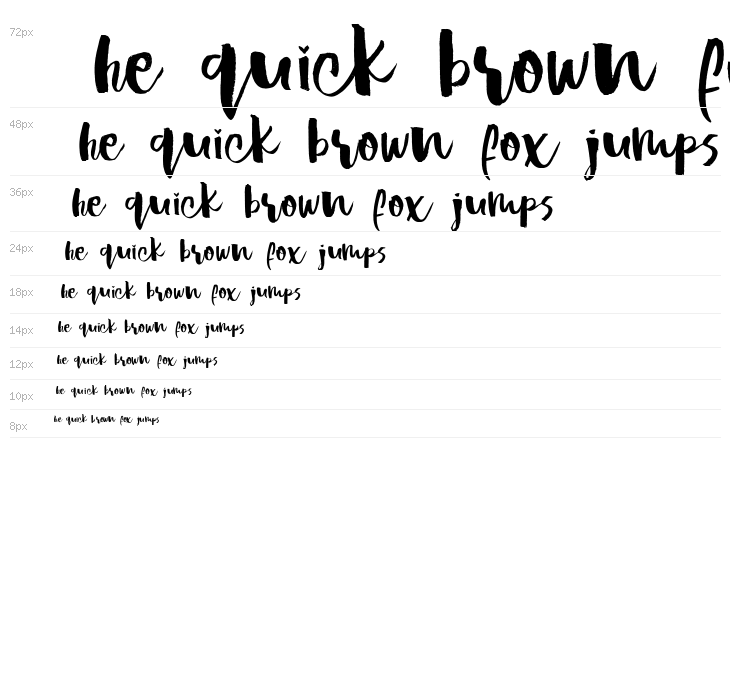 72px he quick brown f
48px he quick brown fox jumps
36px he quick brown fox jumps
24px he quick brown fox jumps
18px he quick brown fox jumps
14px he quick brown fox jumps
12px he quick brown fox jumps
10px he quick brown fox jumps
8px he quick brown fox jumps